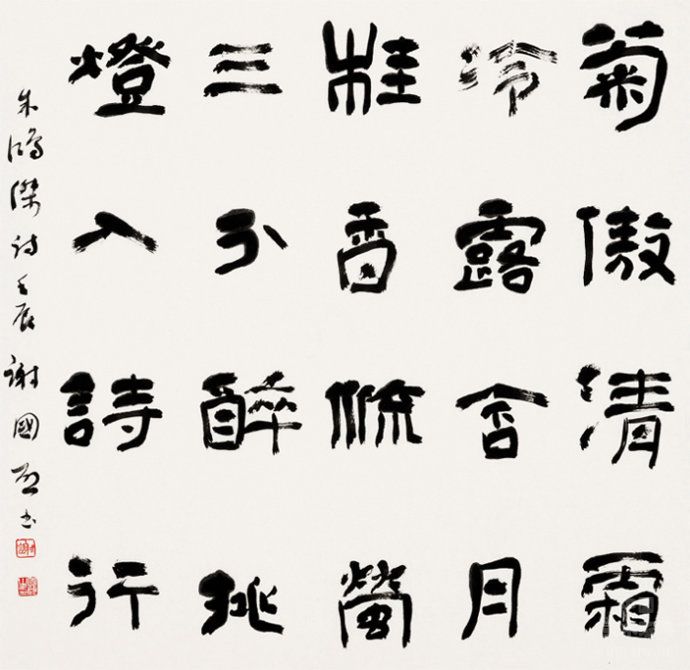 菊傲清霜
冷露含月
桂香流螢
三分醉挑
燈入詩行
朱鴻傑詩壬辰謝國啟書